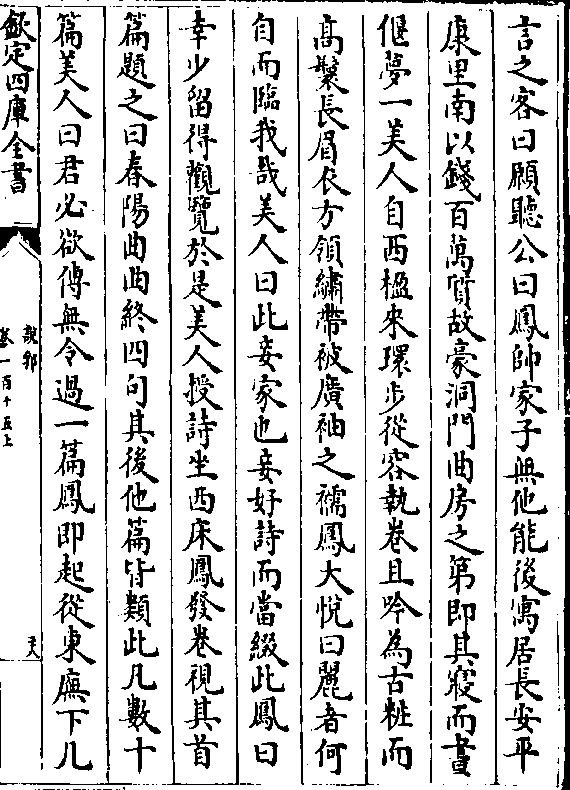 言之客曰願聽公曰鳳帥家子無他能後寓居長安平
康里南以錢百萬質故豪洞門曲房之第即其寢而晝
偃夢一美人自西楹來環步從容執卷且吟為古粧而
高鬟長眉衣方領繡帶被廣袖之襦鳳大悅曰麗者何
自而臨我哉美人曰此妾家也妾好詩而當綴此鳳曰
幸少留得觀覽於是美人授詩坐西床鳳發卷視其首
篇題之曰春陽曲曲終四句其後他篇皆類此凡數十
篇美人曰君必欲傳無令過一篇鳳即起從東廡下几
欽定四庫全書
說郛
卷一百十五上